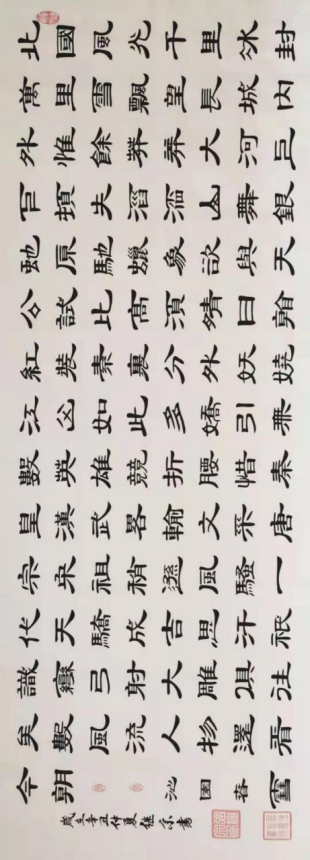 北國風光千里冰封
萬里雪飄望長城内
外惟餘莽莽大河上
下頓失滔滔山舞銀
蛇原馳蠟象欲與天
公試比高須晴日看
紅裝素裹分外妖嬈
江山如此多嬌引無
數英雄競折腰惜秦
皇漢武略輸文采唐
宗宋祖稍遜風騷一
代天驕成吉思汗祇
識彎弓射大雕俱往
矣數風流人物還看
今朝 沁園春 雪
歲在辛丑仲夏 書